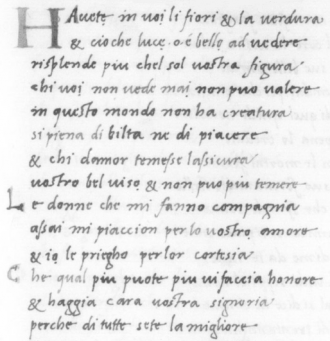 HAvete in voi li fiori & la verdura
& cio che luce, o é bello ad vedere
risplende piu chel sol vostra figura
chi voi non vede mai non puo valere
in questo mondo non ha creatura
si piena di bilta ne di piacere
& chi damor temesse lassicura
vostro bel viso & non puo piu temere
Le donne che mi fanno compagnia
assai mi piaccion per lo vostro amore
& io le priegho per lor cortesia
Che qual piu puote piu vi faccia honore
& haggia cara vostra signoria
perche di tutte sete la migliore